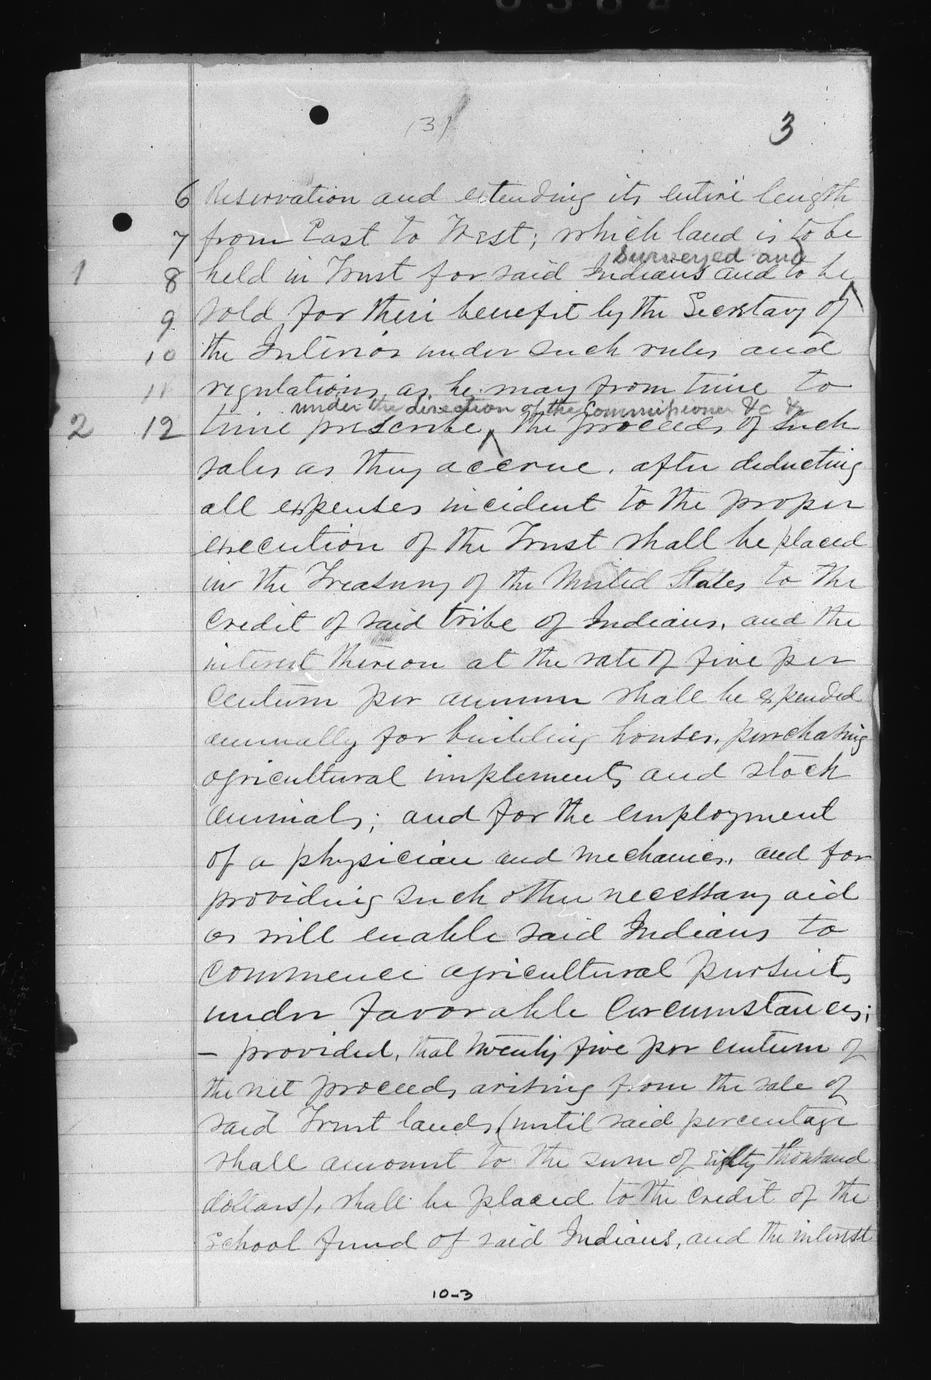 (3)
3
6 Reservation and extending its entire length
7 from East to West; which land is to be
surveyed and
1 8 held in Trust for said Indians and to be
9 sold for their benefit by the Secretary of
10 the Interior under such rules and
11 regulations as he may from time to
under the direction of the Commissioner &c &
2 12 time prescribe, The proceeds of such
sales as they accrue, after deducting
all expenses incident to the proper
execution of the Trust shall be placed
in the Treasury of the United States to the
credit of said tribe of Indians, and the
interest thereon at the rate of five per
centum per annum shall be expended
annually for building houses, purchasing
agricultural implements and stock
animals; and for the employment
of a physician and mechanics, and for
providing such other necessary aid
as will enable said Indians to
commence agricultural pursuits
under favorable circumstances;
– provided, that twenty five per centum of
the net proceeds arising from the sale of
said Trust lands, (until said percentage
shall amount to the sum of Eighty thousand
dollars), shall be placed to the credit of the
School fund of said Indians, and the interest
10-3